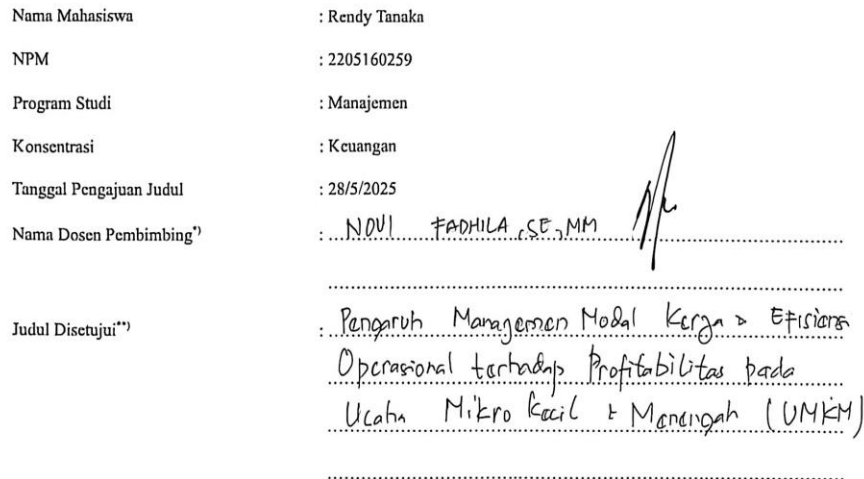 Nama Mahasiswa : Rendy Tanaka
NPM : 2205160259
Program Studi : Manajemen
Konsentrasi : Keuangan
Tanggal Pengajuan Judul : 28/5/2025
Nama Dosen Pembimbing*) : NOVI FADHILA, SE, MM
Judul Disetujui**) : Pengaruh Managemen Modal Kerja & Efisiensi
Operasional terhadap Profitabilitas pada
Usaha Mikro Kecil & Menengah (UMKM)